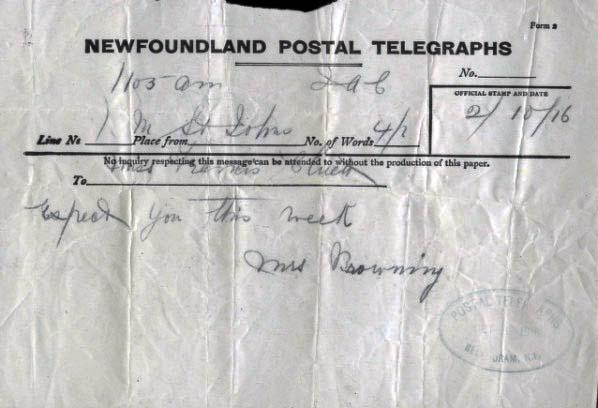 Form 2
NEWFOUNDLAND POSTAL TELEGRAPHS
1105 am
No.
OFFICIAL STAMP AND DATE
2/10/16
Line No M St Johns
Place from No. of Words 4/1
No inquiry respecting this message can be attended to without the production of this paper.
To Miss Francis
Expect you this week
Mrs Browning
POSTAL TELEGRAPHS
N.F.